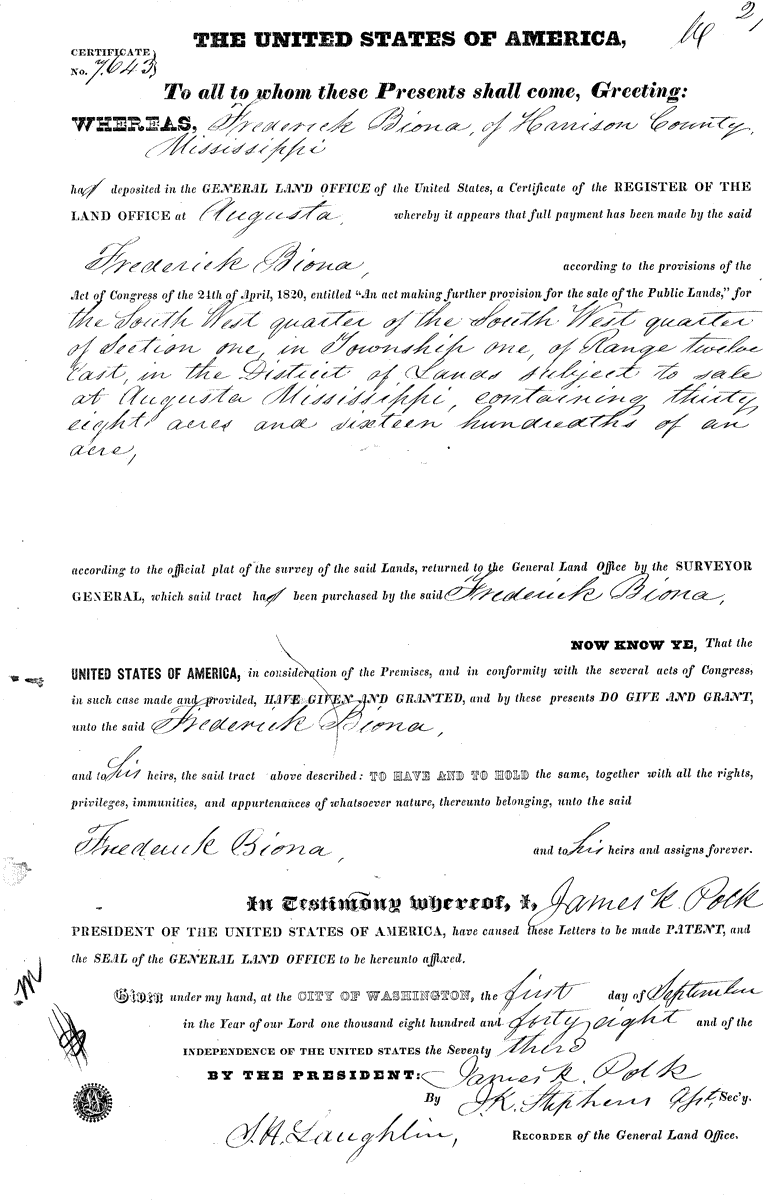 THE UNITED STATES OF AMERICA,
2,
CERTIFICATE
No. 7643
To all to whom these Presents shall come, Greeting:
WHEREAS, Frederick Biona, of Harrison County,
Mississippi
has deposited in the GENERAL LAND OFFICE of the United States, a Certificate of the REGISTER OF THE
LAND OFFICE at Augusta, whereby it appears that full payment has been made by the said
Frederick Biona, according to the provisions of the
Act of Congress of the 24th of April, 1820, entitled "An act making further provision for the sale of the Public Lands," for
the South West quarter of the South West quarter
of Section one, in Township one, of Range twelve
East, in the District of Lands subject to sale
at Augusta Mississippi, containing thirty
eight acres and sixteen hundredths of an
acre,
according to the official plat of the survey of the said Lands, returned to the General Land Office by the SURVEYOR
GENERAL, which said tract has been purchased by the said Frederick Biona,
NOW KNOW YE, That the
UNITED STATES OF AMERICA, in consideration of the Premises, and in conformity with the several acts of Congress,
in such case made and provided, HAVE GIVEN AND GRANTED, and by these presents DO GIVE AND GRANT,
unto the said Frederick Biona,
and to his heirs, the said tract above described: TO HAVE AND TO HOLD the same, together with all the rights,
privileges, immunities, and appurtenances of whatsoever nature, thereunto belonging, unto the said
Frederick Biona, and to his heirs and assigns forever.
In Testimony whereof, I, James K. Polk
PRESIDENT OF THE UNITED STATES OF AMERICA, have caused these Letters to be made PATENT, and
the SEAL of the GENERAL LAND OFFICE to be hereunto affixed.
Given under my hand, at the CITY OF WASHINGTON, the first day of September
in the Year of our Lord one thousand eight hundred and forty eight and of the
INDEPENDENCE OF THE UNITED STATES the Seventy third
BY THE PRESIDENT: James K. Polk
By J. K. Stephens Asst. Sec'y.
S. H. Laughlin, RECORDER of the General Land Office.